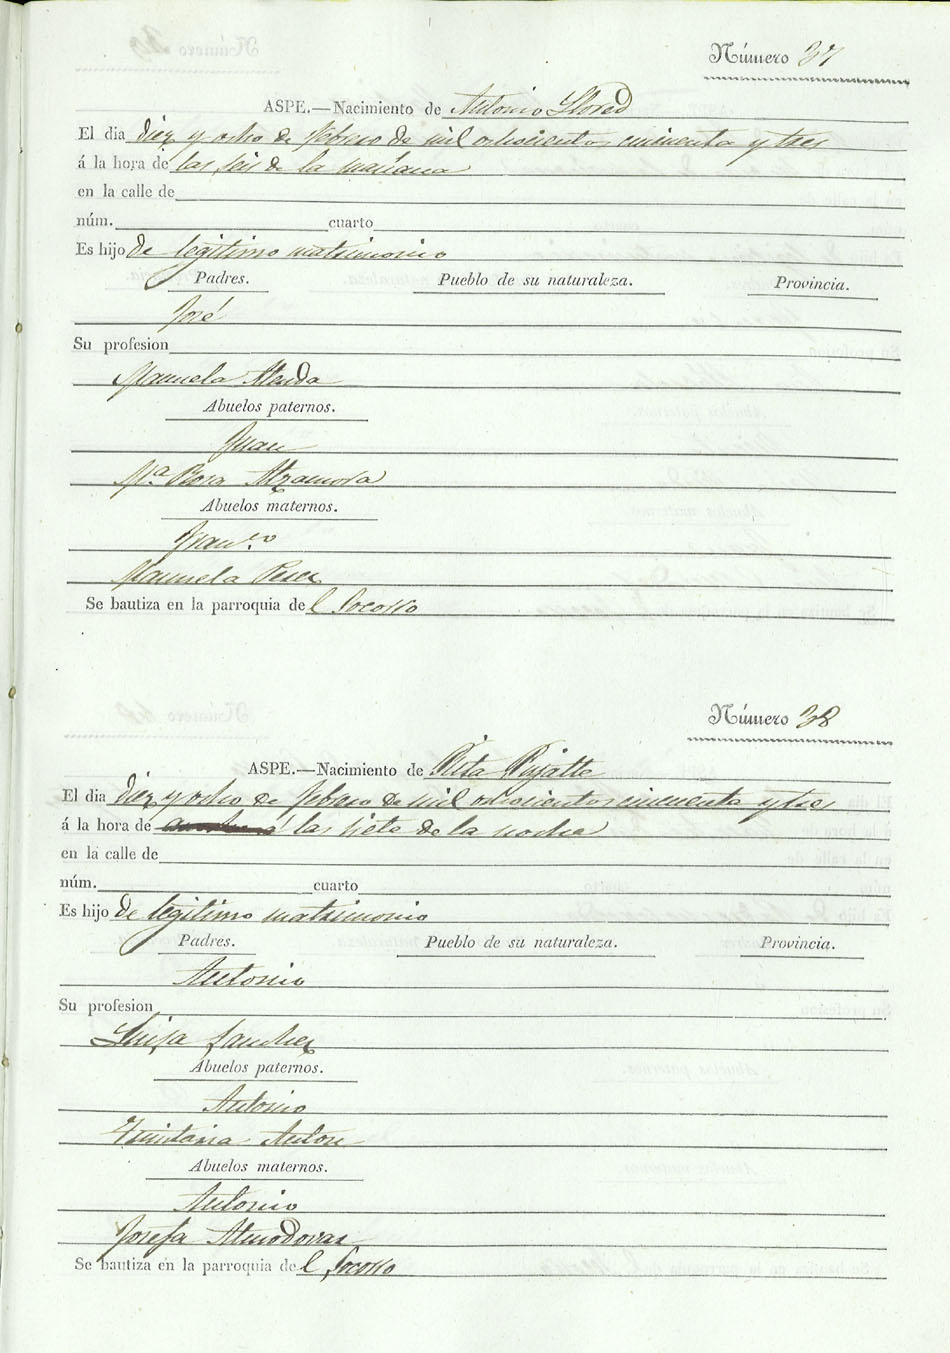 Número 37
ASPE.—Nacimiento de Antonio Llored
El dia diez y ocho de febrero de mil ochocientos cincuenta y tres
á la hora de las seis de la mañana
en la calle de
núm. cuarto
Es hijo de legitimo matrimonio
Padres. Pueblo de su naturaleza. Provincia.
José
Su profesion
Manuela
Abuelos paternos.
Juan
Mª Rosa Alzamora
Abuelos maternos.
Franco
Manuela Perez
Se bautiza en la parroquia del Socorro
Número 38
ASPE.—Nacimiento de Rita Pujalte
El dia diez y ocho de febrero de mil ochocientos cincuenta y tres
á la hora de a las siete de la noche
en la calle de
núm. cuarto
Es hijo de legitimo matrimonio
Padres. Pueblo de su naturaleza. Provincia.
Antonio
Su profesion
Luisa Sanchez
Abuelos paternos.
Antonio
Anton
Abuelos maternos.
Antonio
Josefa Almodovar
Se bautiza en la parroquia del Socorro